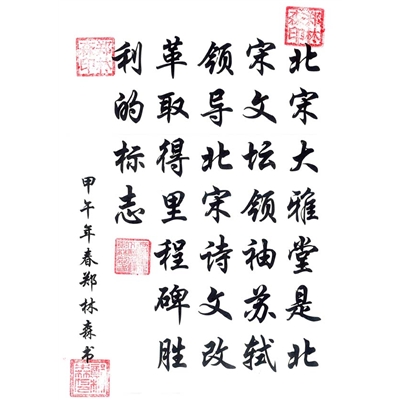 北宋大雅堂是北
宋文坛领袖苏轼
领导北宋诗文改
革取得里程碑胜
利的标志
甲午年春郑林森书